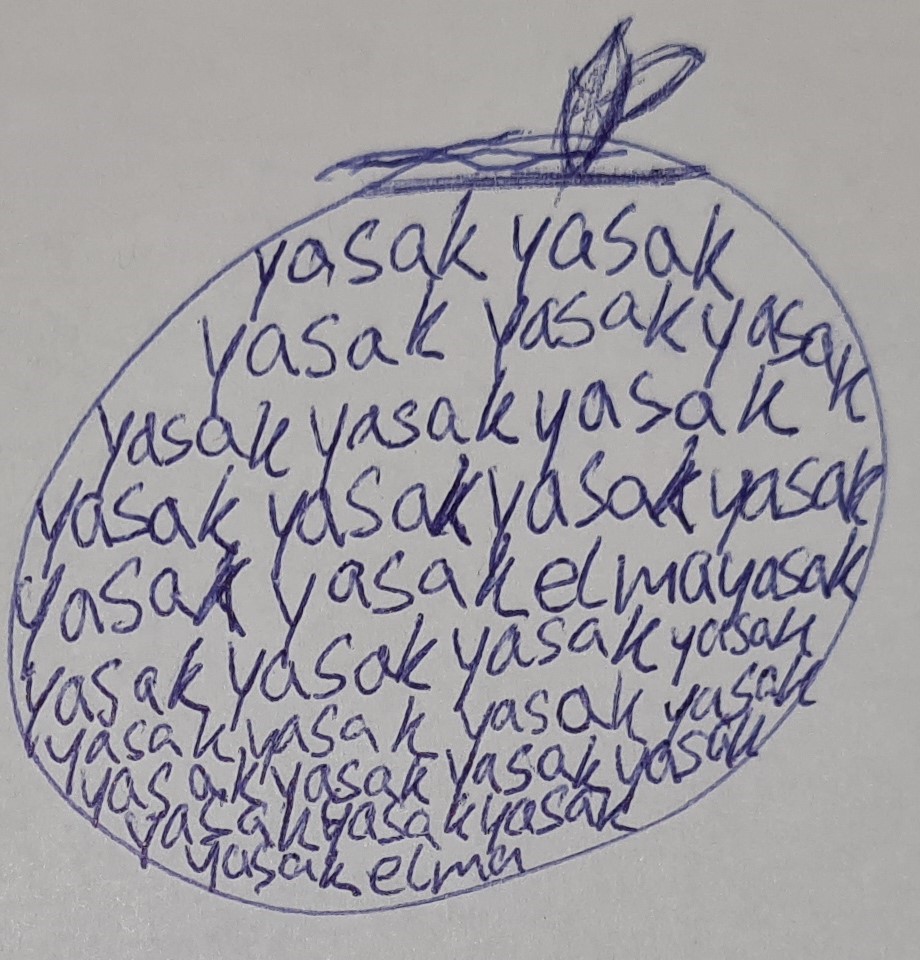 yasak yasak
yasak yasak yasak
yasak yasak yasak
yasak yasak yasak yasak
yasak yasak elma yasak
yasak yasak yasak yasak
yasak yasak yasak yasak
yasak yasak yasak yasak
yasak yasak yasak
yasak elma